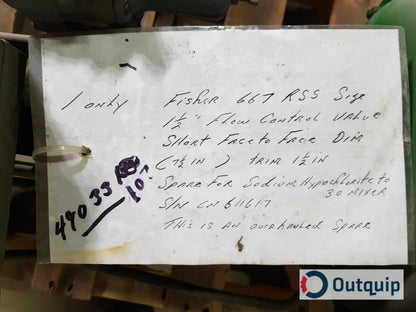 1 only Fisher 667 RSS Size
1½" Flow Control Valve
Short Face to Face Dim
(7½ IN) TRIM 1½ IN
Spare For Sodium Hypochlorite to
30 MIXER
S/N CN611617
THIS IS AN overhauled Spare
490 33
10
Outquip